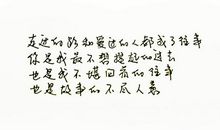 走过的路和爱过的人都成了往事
你是我最不想提起的过去
也是我不堪回首的往事
也是故事的不尽人意